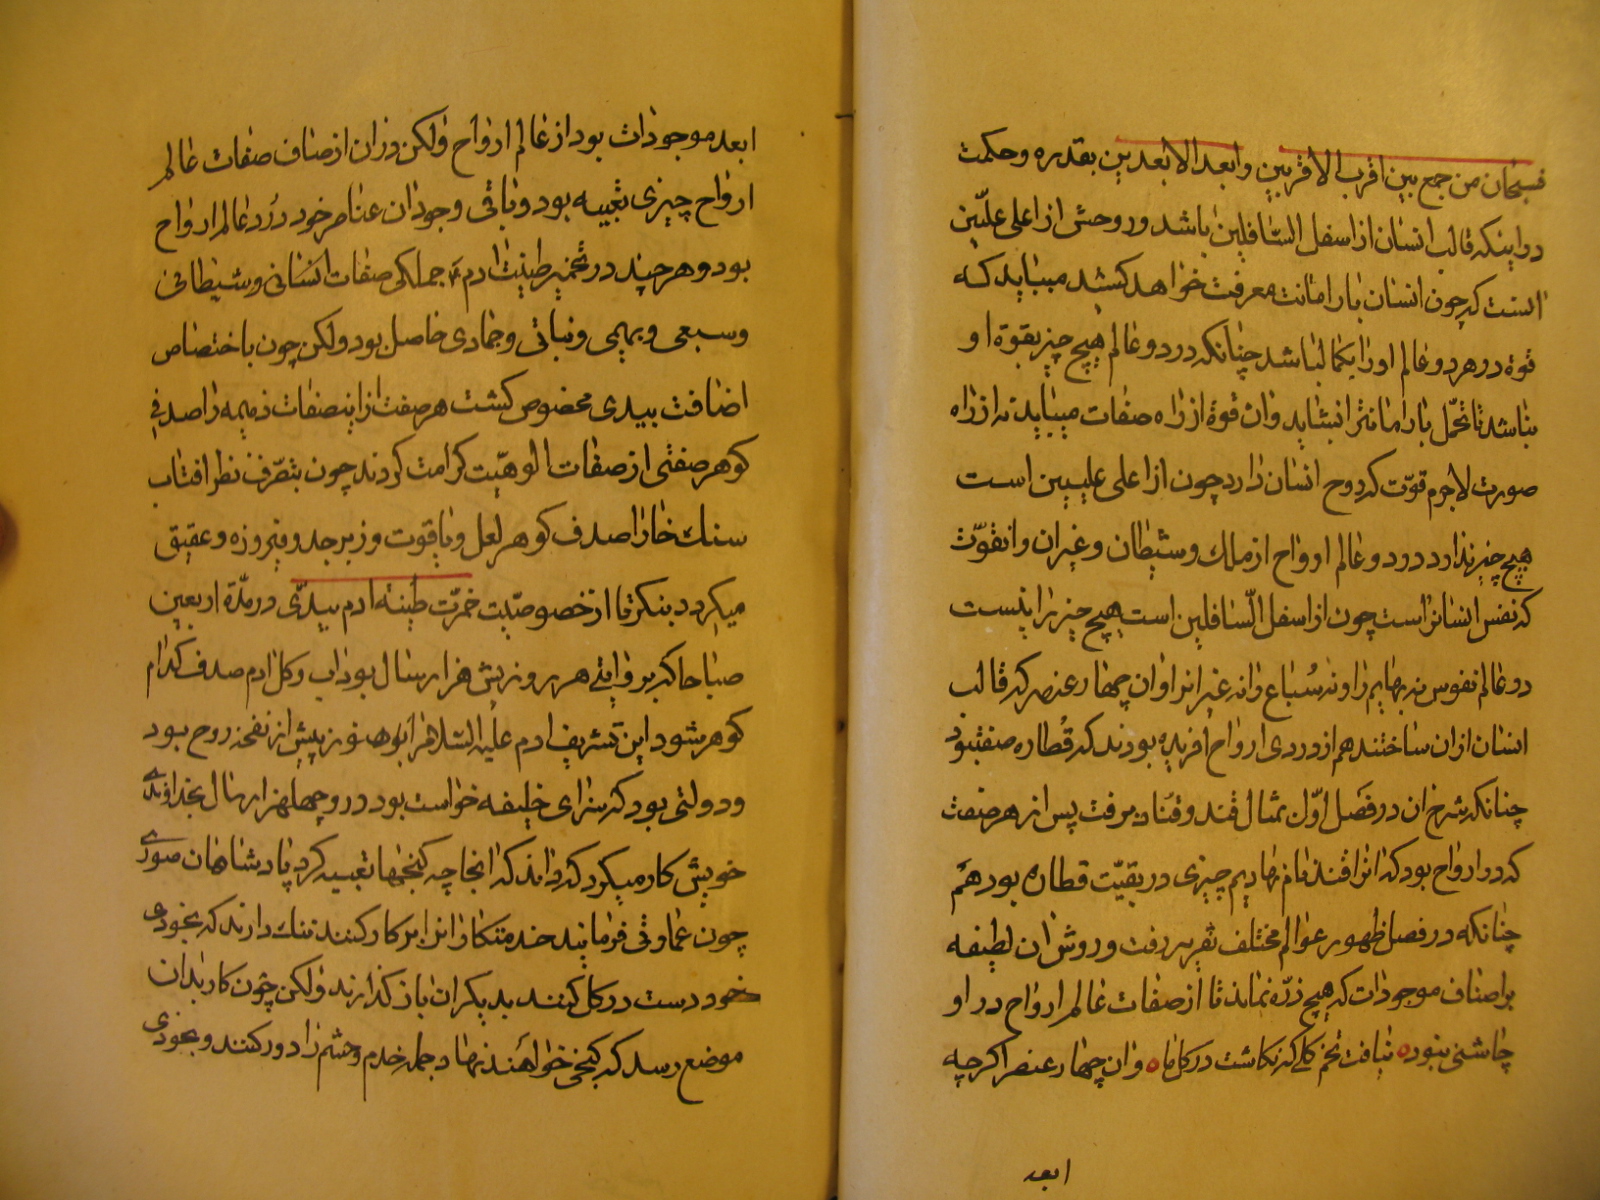 فسبحان من جمع بین اقرب الاقربین وابعد الابعدین بقدره وحکمت
دراینکه قالب انسان از اسفل السّافلین باشد وروحش از اعلی علیّین
انست که چون انسان بار امانت معرفت خواهد کشید میباید که
قوة در هر دو عالم اورا بکمال باشد چنانکه در دو عالم هیچ چیز بقوة او
نباشد تا تحمّل بار امانترا بشاید وان قوة از راه صفات میباید نه از راه
صورت لاجرم قوّت که روح انسان دارد چون از اعلی علیین است
هیچ چیز ندارد در دو عالم ارواح از ملك وشیطان وغیران وانقوّت
که نفس انسانراست چون از اسفل السّافلین است هیچ چیز را نیست
در عالم نفوس نه بهایم را ونه سُباع را نه غیر انرا وان چهار عنصر که قالب
انسان ازان ساختند هم از دردی ارواح افریده بودند که قُطاره صفتبود
چنانکه شرح ان در فصل اوّل بمثال قند وقناد برفت پس از هر صفت
که در ارواح بود که انرا قند نام نهادیم چیزی در بقیّت قطاره بود هم
چنانکه در فصل ظهور عوالم مختلف تقریر رفت وروش ان لطیفه
بر اصناف موجودات که هیچ ذرّه نماند تا از صفات عالم ارواح در او
چاشنی نبوده نیافت تخم کلی که نکاشت در کل ما ه وان چهار عنصر اکرچه
ابعد
ابعد موجودات بود از عالم ارواح ولکن دران از صناف صفات عالم
ارواح چیزی تعبیه بود وباقی وجودان عناصر خود دُرد عالم ارواح
بود وهر چند در تخمیر طینت ادم ع جملکی صفات انسانی وشیطانی
وسبعی وبهیمی ونباتی وجمادی حاصل بود ولکن چون باختصاص
اضافت بیدی مخصوص کشت هر صفت ازاینصفات ذمیمه را صدفی
کوهر صفتی از صفات الوهیّت کرامت کردند چون بتصّرف نظر افتاب
سنك خارا صدف کوهر لعل ویاقوت وزبرجد وفیروزه وعقیق
میکردد بنکر تا از خصوصیّت خمرّت طینة ادم بیدّی در مدّة اربعین
صباحا که بروایتے هر روزیش هزار سال بود اب وکل ادم صدف کدام
کوهر شود این تشریف ادم علیه السّلامرا بود هنوز پیش از نفخه روح بود
ودولتی بود که سرای خلیفه خواست بود درو چهلهزار سال بخداوندے
خویش کار میکرد که داند که انجا چه کنجها تعبیه کرد پادشاهان صورے
چون عمارتی فرمایند خدمتکارانرا بر کار کنند ننك دارند که بخودی
خود دست در کل کنند بدیکران باز کذارند ولکن چون کار بدان
موضع رسد که کنجی خواهند نهاد جمله خدم وحشم را دور کنند وبخودی